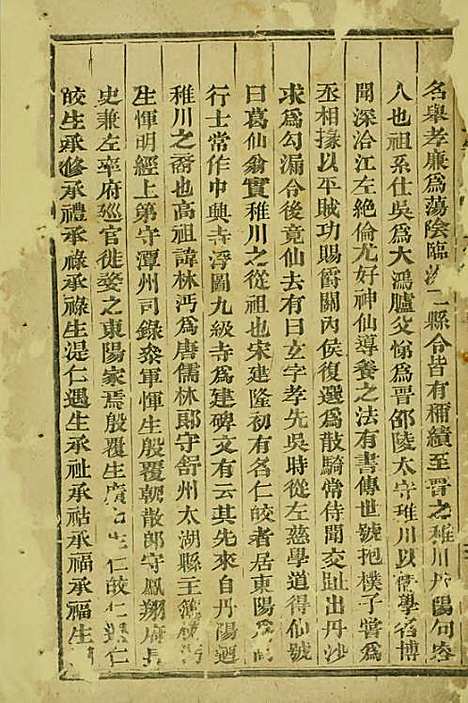 名舉孝廉爲蕩陰臨汾二縣令皆有稱績至晋之稚川丹陽句容
人也祖系仕吳爲大鴻臚父悌爲晋邵陵太守稚川以儒學名博
聞深洽江左絶倫尤好神仙導養之法有書傳世號抱樸子嘗爲
丞相掾以平賊功賜爵關內侯復選爲散騎常侍聞交趾出丹沙
求爲勾漏令後竟仙去有曰玄字孝先吳時從左慈學道得仙號
曰葛仙翁實稚川之從祖也宋建隆初有名仁皎者居東陽
行士常作中興寺浮圖九級寺爲建碑文有云其先來自丹陽廼
稚川之裔也高祖諱林沔爲唐儒林郎守舒州太湖縣主簿
生惲明經上第守潭州司錄叅軍惲生殷覆朝散郎守鳳翔府長
史兼左率府廵官徙婺之東陽家焉殷覆生 生仁皎仁遇仁
皎生承修承禮承祿承祿生湜仁遇生承祉承祜承福承福生